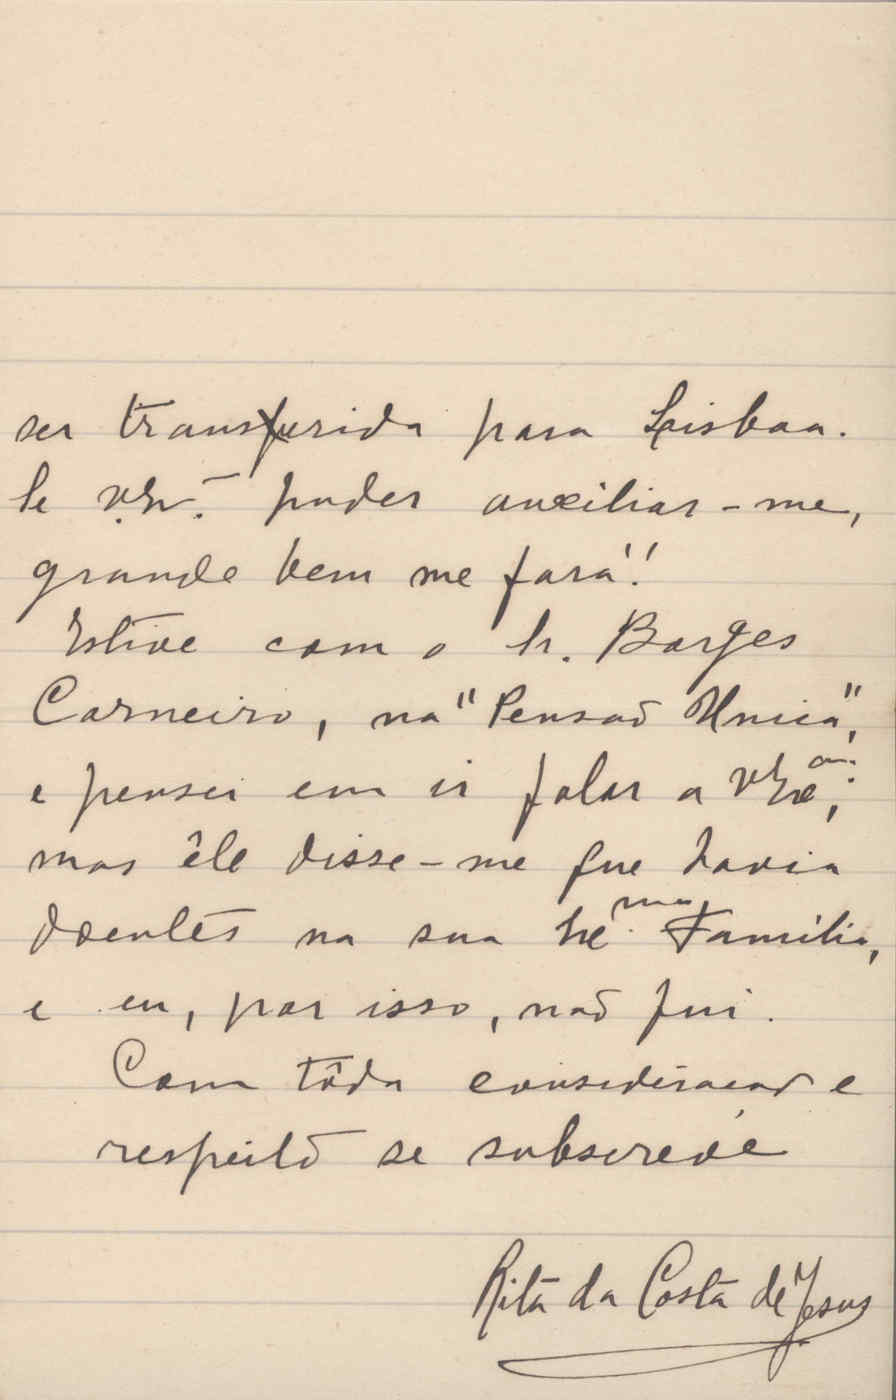 ser transferida para Lisboa.
Se V. Ex.ª puder auxiliar-me,
grande bem me fará!
Estive com o Sr. Borges
Carneiro, na "Pensão Unica",
e pensei em ir falar a V. Ex.ª;
mas êle disse-me que havia
doentes na sua Ex.ma Familia,
e eu, por isso, não fui.
Com tôda consideração e
respeito se subscreve
Rita da Costa de Jesus